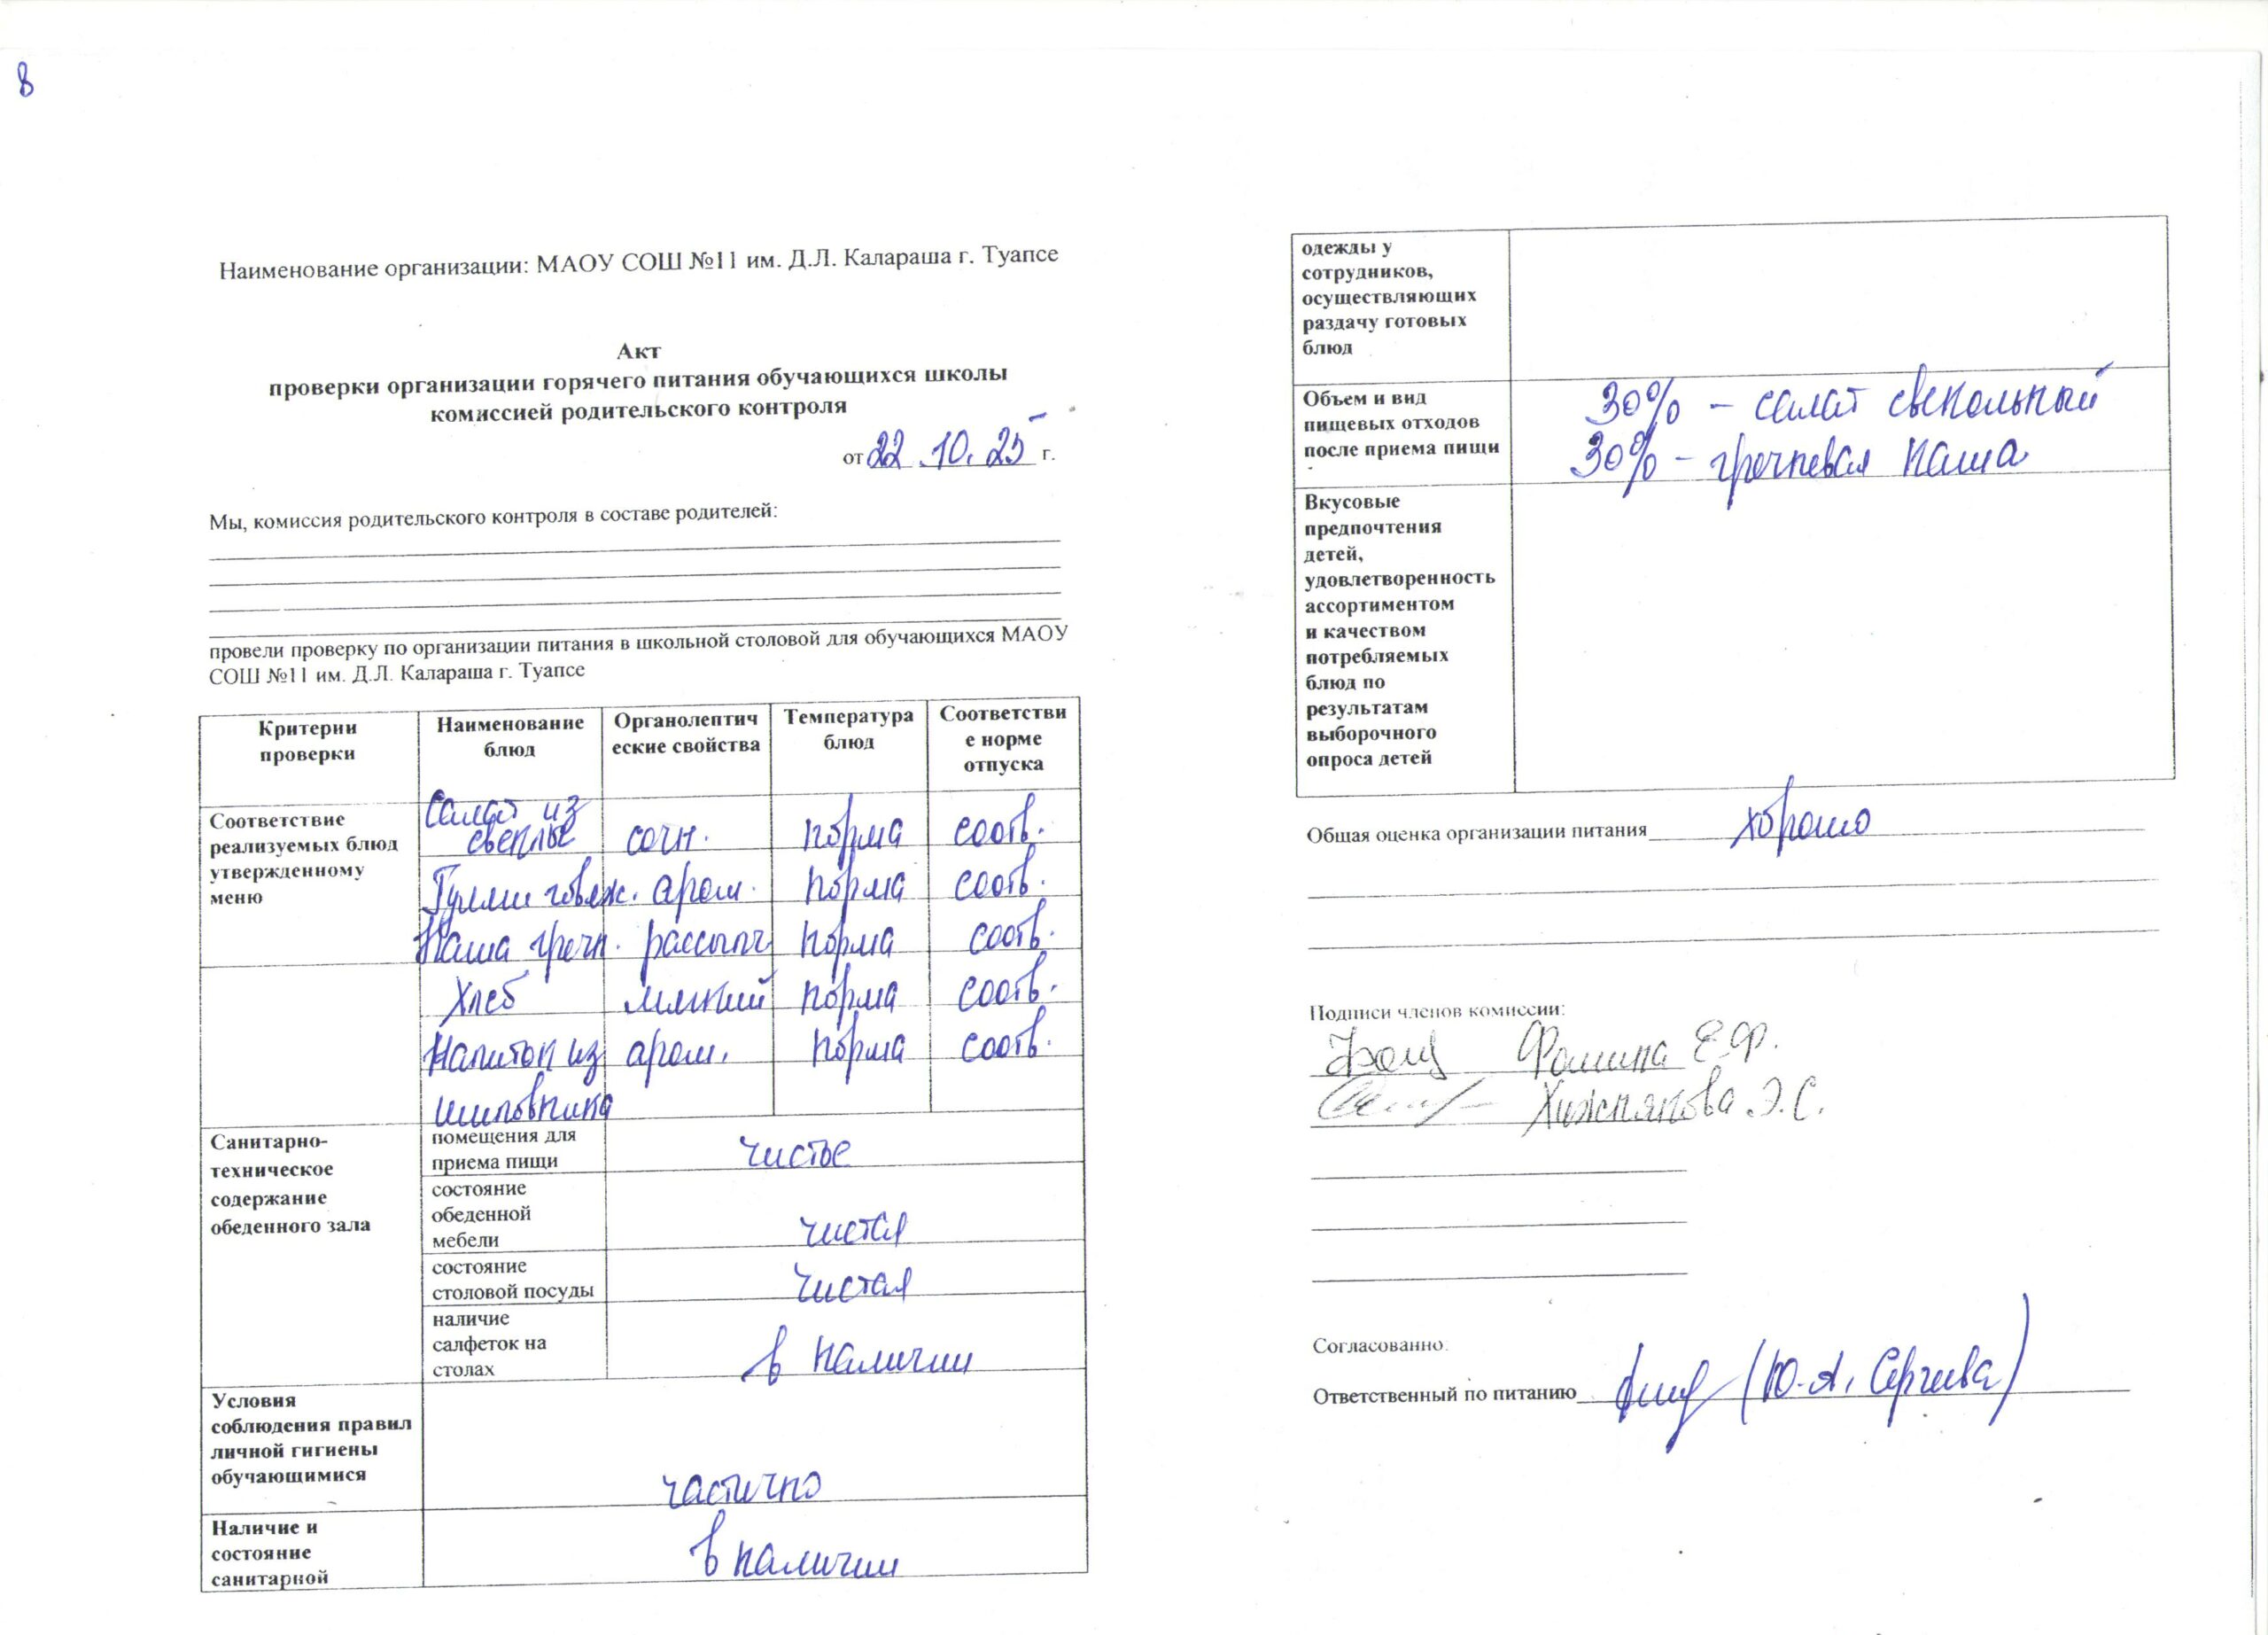 8
Наименование организации: МАОУ СОШ №11 им. Д.Л. Калараша г. Туапсе
Акт
проверки организации горячего питания обучающихся школы
комиссией родительского контроля
от 22.10.25 г.
Мы, комиссия родительского контроля в составе родителей:
провели проверку по организации питания в школьной столовой для обучающихся МАОУ
СОШ №11 им. Д.Л. Калараша г. Туапсе
Критерии проверки
Наименование блюд
Органолептич еские свойства
Температура блюд
Соответстви е норме отпуска
Соответствие
реализуемых блюд
утвержденному
меню
Салат из свеклы сочн. норма соотв.
Гуляш говяж. аром. норма соотв.
Каша гречн. рассыпч норма соотв.
Хлеб мягкий норма соотв.
Напиток из шиповника аром. норма соотв.
Санитарно-
техническое
содержание
обеденного зала
помещения для
приема пищи чистое
состояние
обеденной
мебели чистая
состояние
столовой посуды чистая
наличие
салфеток на
столах в наличии
Условия
соблюдения правил
личной гигиены
обучающимися частично
Наличие и
состояние
санитарной в наличии
одежды у
сотрудников,
осуществляющих
раздачу готовых
блюд
Объем и вид
пищевых отходов
после приема пищи
30% - салат свекольный
30% - гречневая каша
Вкусовые
предпочтения
детей,
удовлетворенность
ассортиментом
и качеством
потребляемых
блюд по
результатам
выборочного
опроса детей
Общая оценка организации питания хорошо
Подписи членов комиссии:
Фомина Е.Ф.
Хижнякова Э.С.
Согласованно.
Ответственный по питанию (Ю.А. Сергеева)